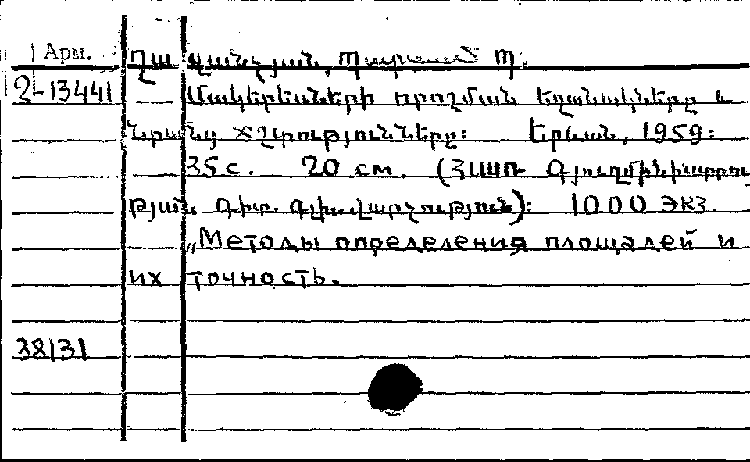 Арм.
2-13441
Մակերեսների որոշման եղանակները և
նրանց ճշտությունները: Երևան, 1959:
35 с. 20 см. (ՀՍՍՌ Գյուղմինիստրու
թյան Գիտ. գլխ. վարչություն): 1000 экз.
„Методы определения площадей и
их точность.
38131